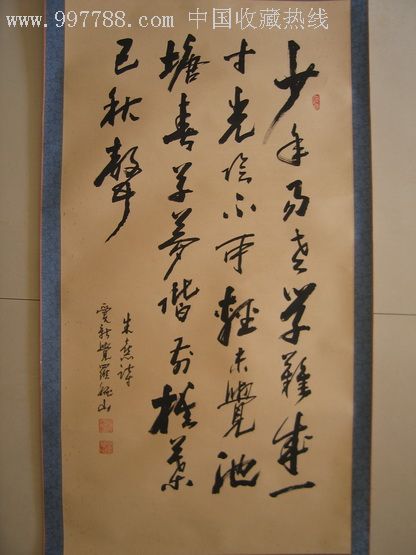 www.997788.com 中国收藏热线
少年易老学難成一
寸光陰不可輕未覺池
塘春草夢階前梧葉
已秋聲
朱熹詩
愛新覺羅